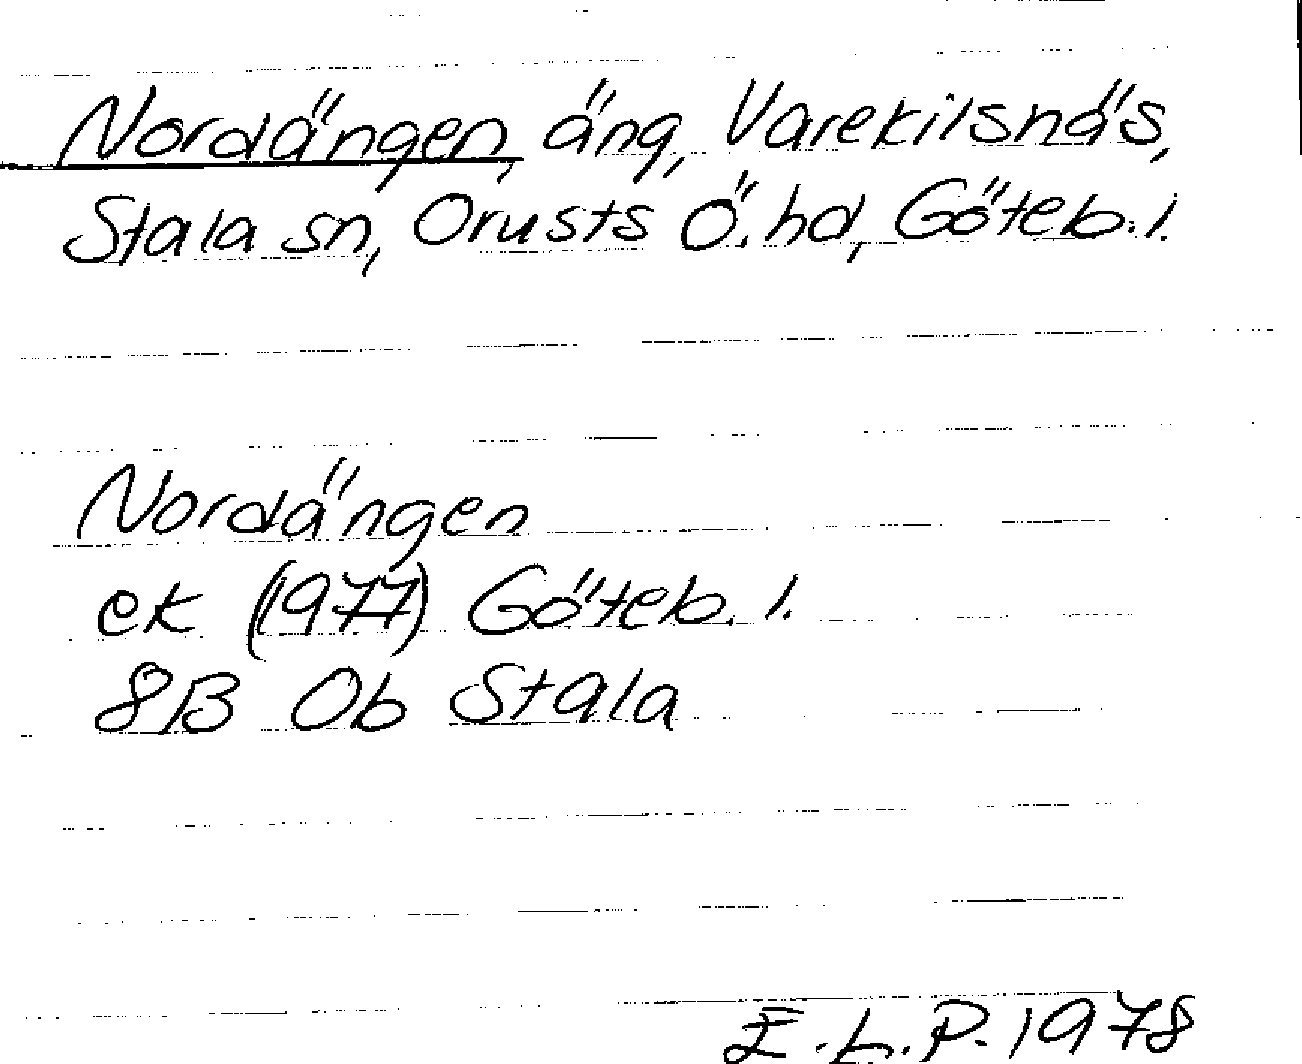 Nordängen, äng, Varekilsnäs,
Stala sn, Orusts Ö. hd, Göteb. l.
Nordängen
ek (1977) Göteb. l.
8B 0b Stala
E.L.P. 1978